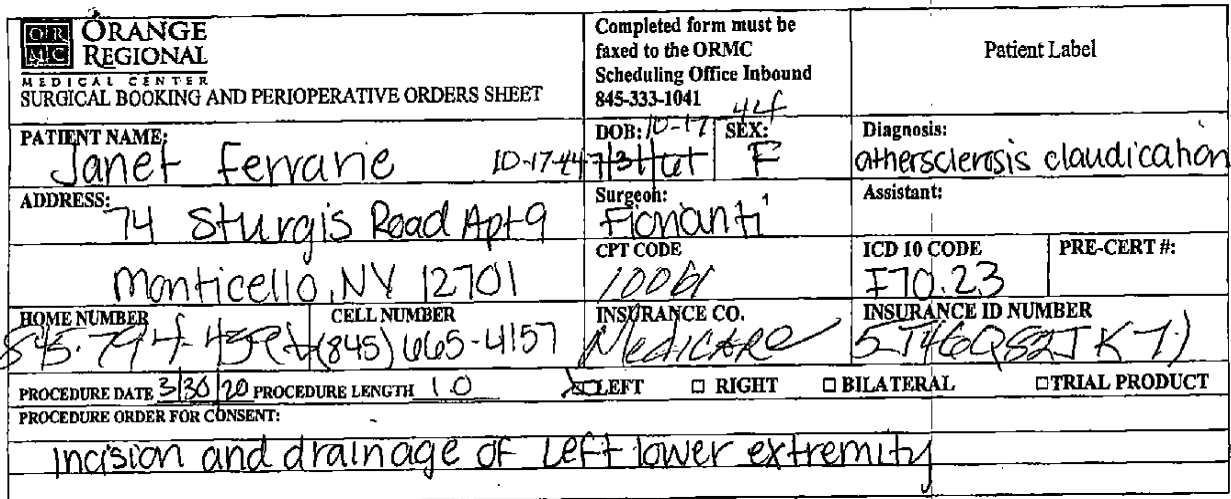 OR MC ORANGE REGIONAL
MEDICAL CENTER
SURGICAL BOOKING AND PERIOPERATIVE ORDERS SHEET
Completed form must be
faxed to the ORMC
Scheduling Office Inbound
845-333-1041
Patient Label
PATIENT NAME:
Janet Ferrarie 10-17-47
DOB: 10-17
SEX:
F
Diagnosis:
athersclerosis claudication
ADDRESS:
74 Sturgis Road Apt 9
Surgeon:
Assistant:
Monticello, NY 12701
CPT CODE
10061
ICD 10 CODE
I70.23
PRE-CERT #:
HOME NUMBER
CELL NUMBER
(845) 665-4157
INSURANCE CO.
Medicare
INSURANCE ID NUMBER
PROCEDURE DATE 3/30/20 PROCEDURE LENGTH 1.0 LEFT RIGHT BILATERAL TRIAL PRODUCT
PROCEDURE ORDER FOR CONSENT:
Incision and drainage of Left lower extremity